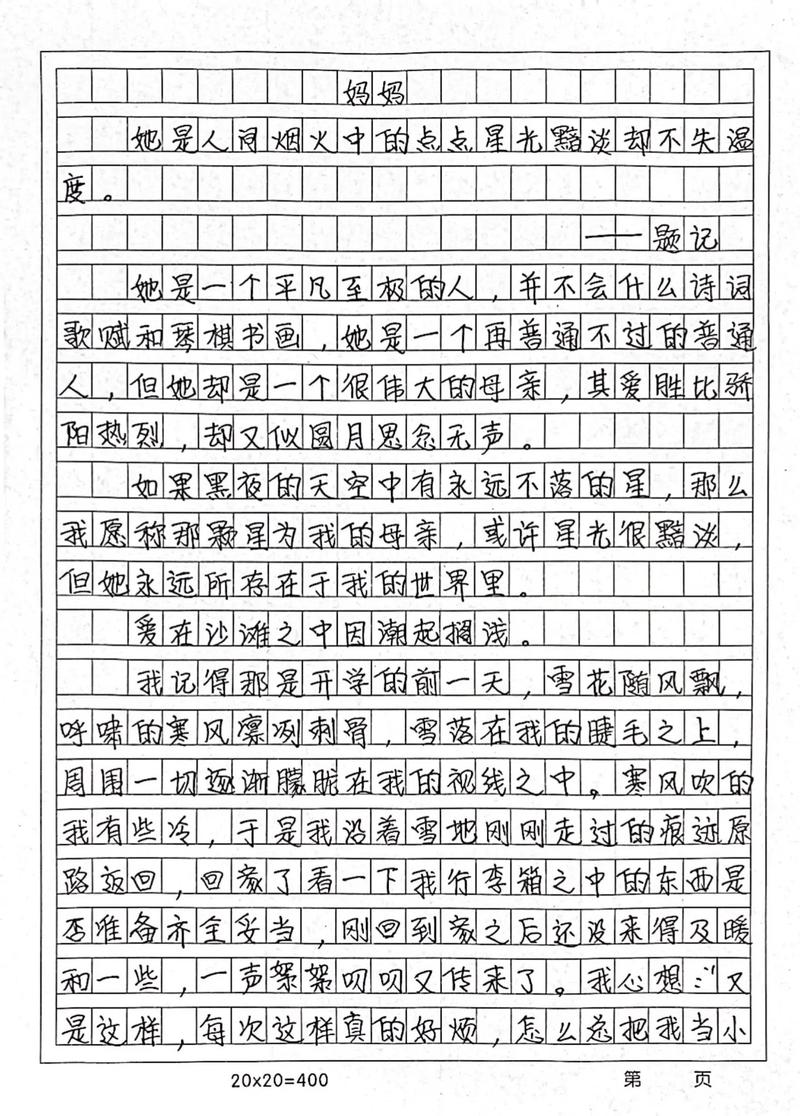 妈妈
她是人间烟火中的点点星光黯淡却不失温
度。
——题记
她是一个平凡至极的人，并不会什么诗词
歌赋和琴棋书画，她是一个再普通不过的普通
人，但她却是一个很伟大的母亲，其爱胜比骄
阳热烈，却又似圆月思念无声。
如果黑夜的天空中有永远不落的星，那么
我愿称那颗星为我的母亲，或许星光很黯淡，
但她永远所存在于我的世界里。
爱在沙滩之中因潮起搁浅。
我记得那是开学的前一天，雪花随风飘，
呼啸的寒风凛冽刺骨，雪落在我的睫毛之上，
周围一切逐渐朦胧在我的视线之中。寒风吹的
我有些冷，于是我沿着雪地刚刚走过的痕迹原
路返回，回家了看一下我行李箱之中的东西是
否准备齐全妥当，刚回到家之后还没来得及暖
和一些，一声絮絮叨叨又传来了。我心想：“又
是这样，每次这样真的好烦，怎么总把我当小
20x20=400
第 页